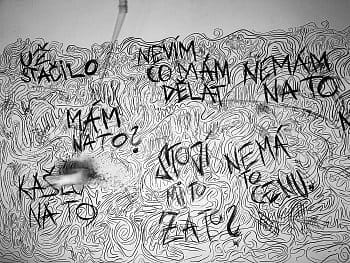 UŽ
STAČILO
NEVÍM
CO MÁM
DĚLAT
NEMÁM
NA TO
MÁM
NA TO?
STOJÍ
MI TO
ZA TO?
NEMÁ
TO
CENU.
KAŠLU
NA TO